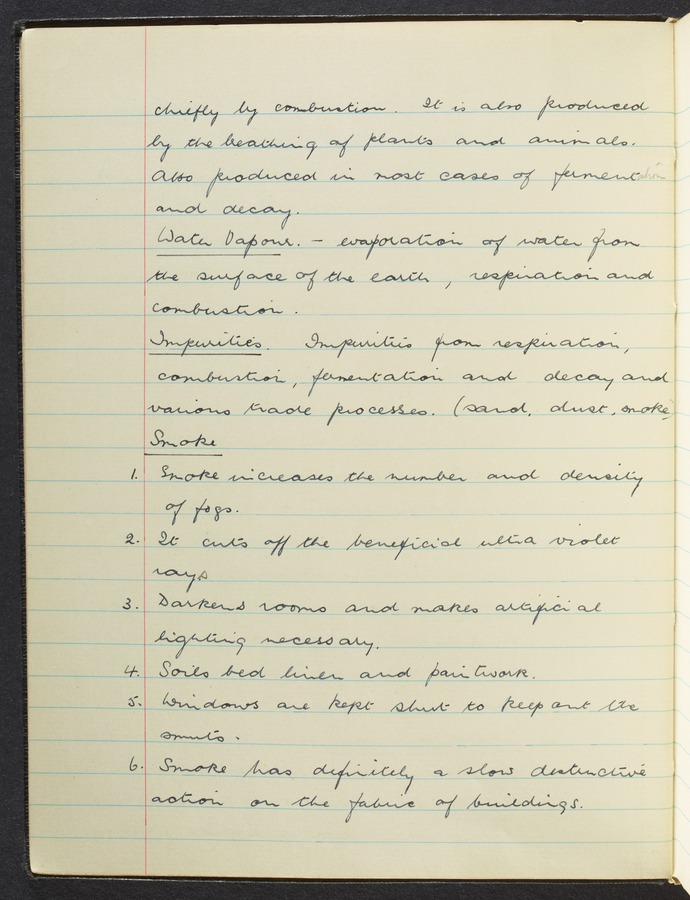 chiefly by combustion. It is also produced
by the beathing of plants and animals.
Also produced in most cases of fermentation
and decay.
Water Vapour. - evaporation of water from
the surface of the earth, respiration and
combustion.
Impurities. Impurities from respiration,
combustion, fermentation and decay and
various trade processes. (sand, dust, smoke)
Smoke
1. Smoke increases the number and density
of fogs.
2. It cuts off the beneficial ultra violet
rays
3. Darkens rooms and makes artificial
lighting necessary.
4. Soils bed linen and paintwork.
5. Windows are kept shut to keep out the
smuts.
6. Smoke has definitely a slow destructive
action on the fabric of buildings.